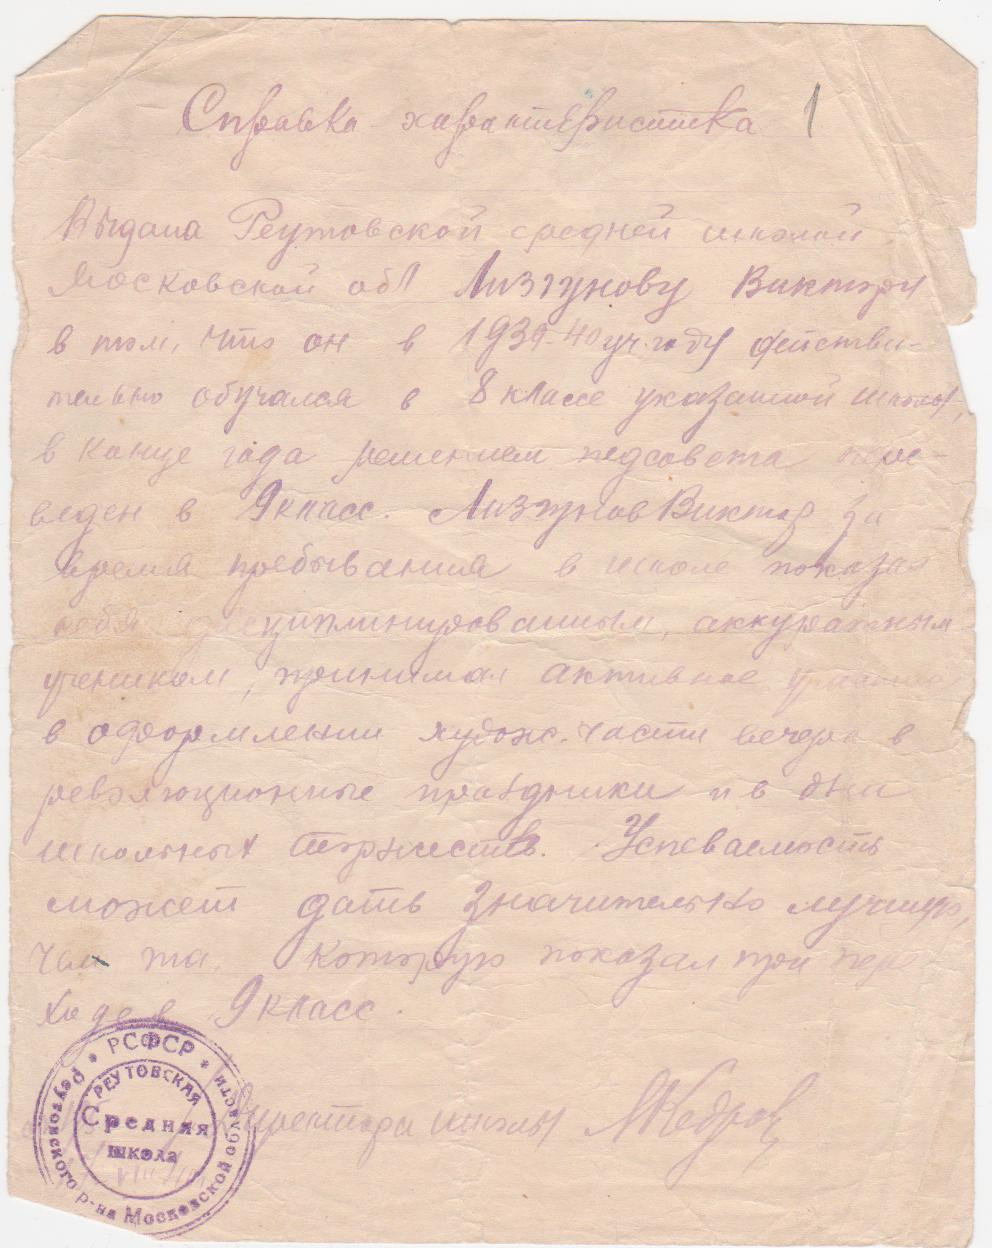 Справка характеристика 1
Выдана Реутовской средней школой
Московской обл Лизгунову Виктору
в том, что он в 1939-40 уч. году действи-
тельно обучался в 8 классе указанной школы,
в конце года решением педсовета пере-
веден в 9 класс. Лизгунов Виктор за
время пребывания в школе показал
себя дисциплинированным, аккуратным
учеником, принимал активное участие
в оформлении худож. части вечера в
революционные праздники и в дни
школьных торжеств. Успеваемость
может дать значительно лучшую,
чем та, которую показал при пере
ходе в 9 класс.
Директора школы
РСФСР
Реутовского р-на Московской области
РЕУТОВСКАЯ
Средняя
школа